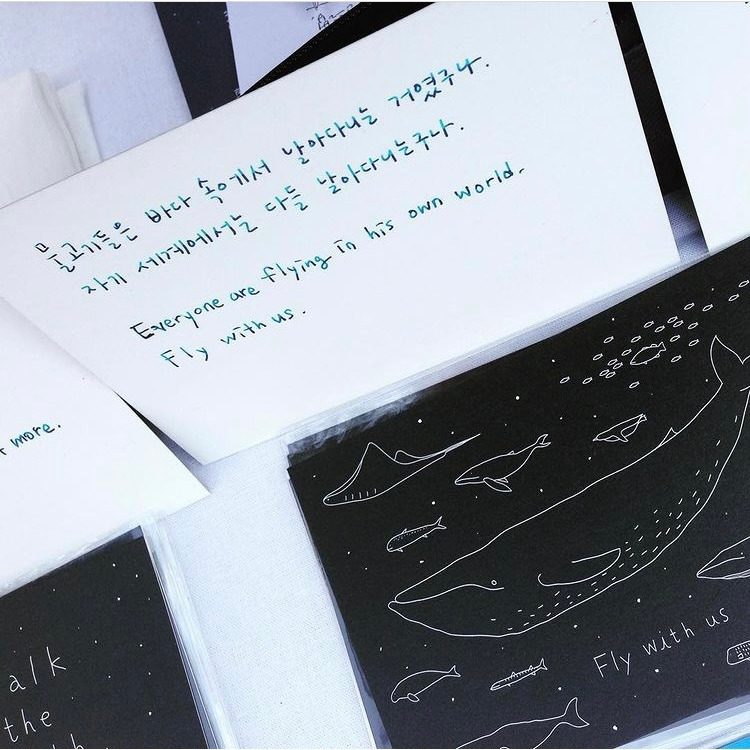 물고기들은 바다 속에서 날아다니는 거였구나.
자기 세계에서는 다들 날아다니는구나.
Everyone are flying in his own world.
Fly with us.
more.
Fly with us
alk
the